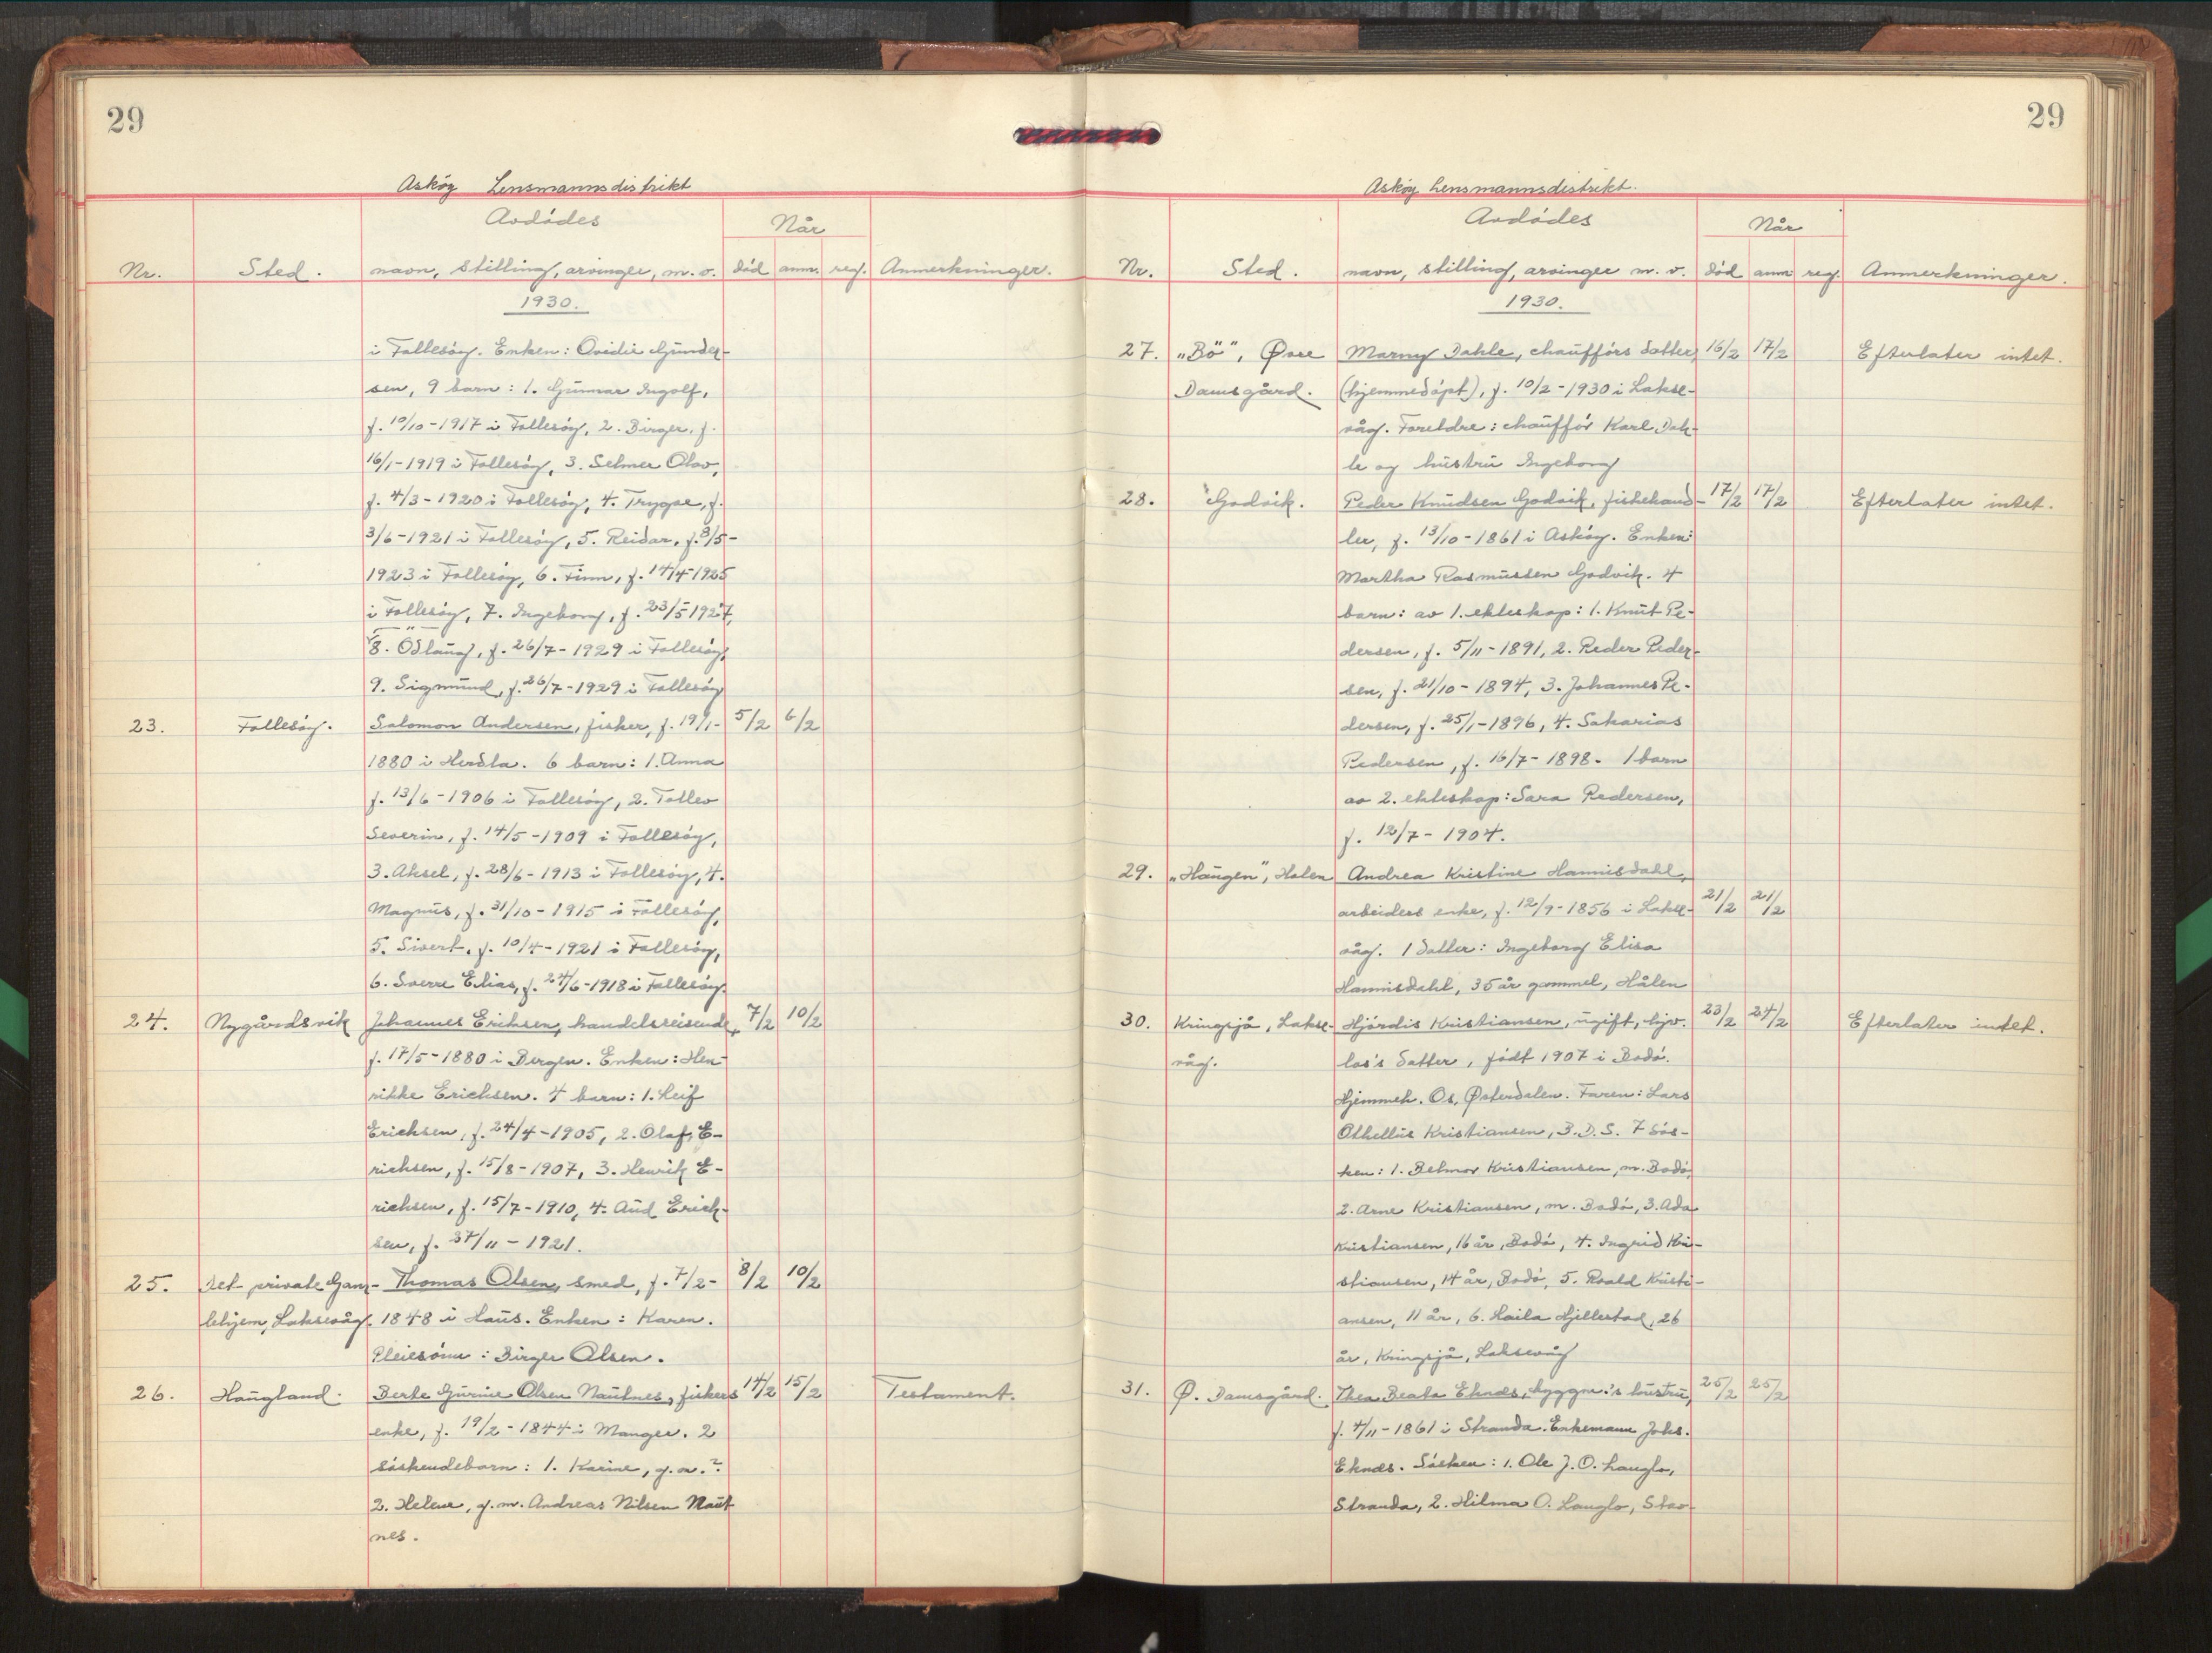 29
Askøy Lensmannsdistrikt
Avdødes
Når
Nr. Sted. navn, stilling, arvinger, m. v. død anm. reg. Anmerkninger.
1930.
i Follesøy. Enken: Ovidie Gunder-
sen, 9 barn: 1. Gunnar Ingolf,
f. 10/10-1917 i Follesøy, 2. Birger, f.
16/1-1919 i Follesøy, 3. Selmer Olav,
f. 4/3-1920 i Follesøy, 4. Trygve, f.
3/6-1921 i Follesøy, 5. Reidar, f. 3/5-
1923 i Follesøy, 6. Finn, f. 14/4-1925
i Follesøy, 7. Ingeborg, f. 23/5-1927,
8. Ödlaug, f. 26/7-1929 i Follesøy,
9. Sigmund, f. 26/7-1929 i Follesøy
23. Follesøy. Salomon Andersen, fisker, f. 19/1- 5/2 6/2
1880 i Herdla. 6 barn: 1. Anna
f. 13/6-1906 i Follesøy, 2. Tollev
Severin, f. 14/5-1909 i Follesøy,
3. Aksel, f. 28/6-1913 i Follesøy, 4.
Magnus, f. 31/10-1915 i Follesøy,
5. Sivert, f. 10/4-1921 i Follesøy,
6. Sverre Elias, f. 24/6-1918 i Follesøy.
24. Nygårdsvik Johannes Erichsen, handelsreisende, 7/2 10/2
f. 17/5-1880 i Bergen. Enken: Hen-
rikke Erichsen. 4 barn: 1. Leif
Erichsen, f. 24/4-1905, 2. Olaf E-
richsen, f. 15/8-1907, 3. Henrik E-
richsen, f. 15/7-1910, 4. Aud Erich-
sen, f. 27/11-1921.
25. Det private Gam- Thomas Olsen, smed, f. 7/2- 8/2 10/2
lehjem, Laksevåg. 1848 i Haus. Enken: Karen.
Pleiesønn: Birger Olsen.
26. Haugland. Berte Gurine Olsen Nautnes, fiskers 14/2 15/2 Testament.
enke, f. 19/2-1844 i Manger. 2
søskendebarn: 1. Karine, g.m.?
2. Helene, g.m. Andreas Nilsen Naut
nes.
29
Askøy Lensmannsdistrikt.
Avdødes
Når
Nr. Sted. navn, stilling, arvinger m. v. død anm reg. Anmerkninger.
1930.
27. "Bö", Øvre Marny Dahle, chaufførs datter, 16/2 17/2 Efterlater intet.
Damsgård. (hjemmedøpt), f. 10/2-1930 i Lakse-
våg. Foreldre: chauffør Karl Dah-
le og hustru Ingeborg
28. Godvik. Peder Knudsen Godvik, fiskehand- 17/2 17/2 Efterlater intet.
ler, f. 13/10-1861 i Askøy. Enken:
Martha Rasmussen Godvik. 4
barn: av 1. ekteskap: 1. Knut Pe-
dersen, f. 5/11-1891, 2. Peder Peder-
sen, f. 21/10-1894, 3. Johannes Pe-
dersen, f. 25/1-1896, 4. Sakarias
Pedersen, f. 16/7-1898. 1 barn
av 2. ekteskap: Sara Pedersen,
f. 12/7-1904.
29. "Haugen", Holen Andrea Kristine Hannisdahl,
arbeiders enke, f. 12/9-1856 i Lakse- 21/2 21/2
våg. 1 datter: Ingeborg Elisa
Hannisdahl, 35 år gammel, Hålen
30. Kringsjå, Lakse- Hjørdis Kristiansen, ugift, hjv. 23/2 24/2 Efterlater intet.
våg. los's datter, født 1907 i Bodø.
Hjemmeh. Os, Østerdalen. Faren: Lars
Othellus Kristiansen, B.D.S. 7 søs-
ken: 1. Belmor Kristiansen, m. Bodø,
2. Arne Kristiansen, m. Bodø, 3. Ada
Kristiansen, 16 år, Bodø, 4. Ingrid Kri-
stiansen, 14 år, Bodø, 5. Roald Kristi-
ansen, 11 år, 6. Haila Hjellestad, 26
år, Kringsjå, Laksevåg
31. Ø. Damsgård. Thea Beata Eknes, byggm.'s hustru, 25/2 25/2
f. 4/11-1861 i Stranda. Enkemann Johs.
Eknes. Søsken: 1. Ole J. O. Langlo,
Stranda, 2. Hilma O. Langlo, Stav-